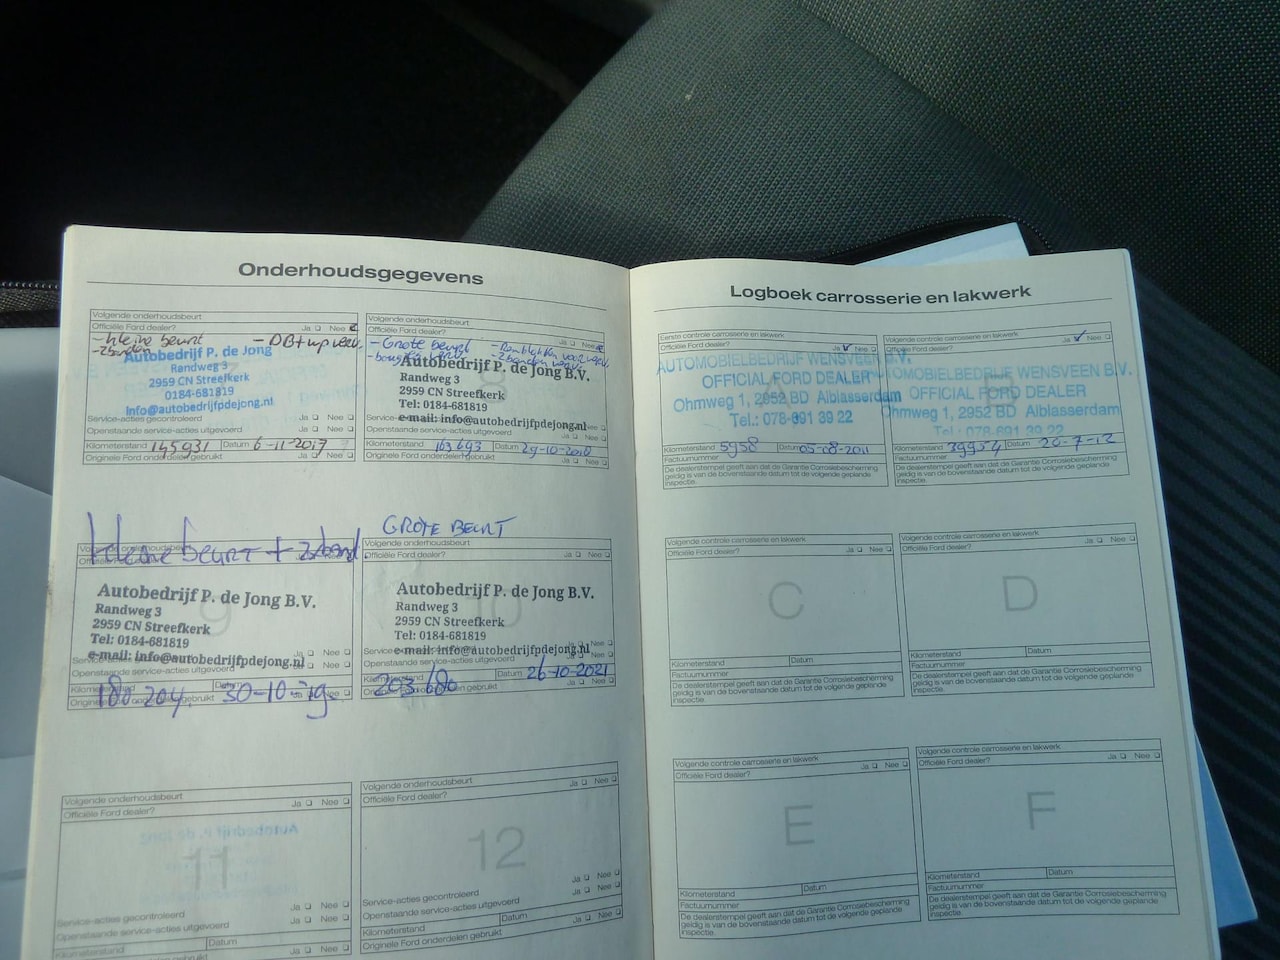 Onderhoudsgegevens
Volgende onderhoudsbeurt
Officiële Ford dealer? Ja Nee
-kleine beurt
-2banden
Autobedrijf P. de Jong
Randweg 3
2959 CN Streefkerk
0184-681819
Info@autobedrijfpdejong.nl
Service-acties gecontroleerd Ja Nee
Openstaande service-acties uitgevoerd Ja Nee
Kilometerstand 145931 Datum 6-11-2017
Originele Ford onderdelen gebruikt Ja Nee
Volgende onderhoudsbeurt
Officiële Ford dealer? Ja Nee
-Grote beurt
8
Autobedrijf P. de Jong B.V.
Randweg 3
2959 CN Streefkerk
Tel: 0184-681819
e-mail: info@autobedrijfpdejong.nl
Openstaande service-acties uitgevoerd
Kilometerstand 163693 Datum 29-10-2018
Originele Ford onderdelen gebruikt Ja Nee
kleine beurt + 2xband
Volgende onderhoudsbeurt
9
Autobedrijf P. de Jong B.V.
Randweg 3
2959 CN Streefkerk
Tel: 0184-681819
e-mail: info@autobedrijfpdejong.nl
Openstaande service-acties uitgevoerd Ja Nee
180-204 30-10-19
GROTE BEURT
Volgende onderhoudsbeurt
Officiële Ford dealer? Ja Nee
10
Autobedrijf P. de Jong B.V.
Randweg 3
2959 CN Streefkerk
Tel: 0184-681819
e-mail: info@autobedrijfpdejong.nl
Openstaande service-acties uitgevoerd Ja Nee
203.680 Datum 26-10-2021
Volgende onderhoudsbeurt
Officiële Ford dealer? Ja Nee
11
Service-acties gecontroleerd Ja Nee
Openstaande service-acties uitgevoerd Ja Nee
Kilometerstand Datum
Originele Ford onderdelen gebruikt Ja Nee
Volgende onderhoudsbeurt
Officiële Ford dealer? Ja Nee
12
Service-acties gecontroleerd Ja Nee
Openstaande service-acties uitgevoerd Ja Nee
Kilometerstand Datum
Originele Ford onderdelen gebruikt Ja Nee
Logboek carrosserie en lakwerk
Eerste controle carrosserie en lakwerk
Officiële Ford dealer? Ja Nee
A
AUTOMOBIELBEDRIJF WENSVEEN B.V.
OFFICIAL FORD DEALER
Ohmweg 1, 2952 BD Alblasserdam
Tel.: 078-691 39 22
Kilometerstand 5958 Datum 05-08-2011
Factuurnummer
De dealerstempel geeft aan dat de Garantie Corrosiebescherming
geldig is van de bovenstaande datum tot de volgende geplande
inspectie.
Volgende controle carrosserie en lakwerk
Officiële Ford dealer? Ja Nee
AUTOMOBIELBEDRIJF WENSVEEN B.V.
OFFICIAL FORD DEALER
Ohmweg 1, 2952 BD Alblasserdam
Tel.: 078-691 39 22
Kilometerstand 39954 Datum 20-7-12
Factuurnummer
De dealerstempel geeft aan dat de Garantie Corrosiebescherming
geldig is van de bovenstaande datum tot de volgende geplande
inspectie.
Volgende controle carrosserie en lakwerk
Officiële Ford dealer? Ja Nee
C
Kilometerstand Datum
Factuurnummer
De dealerstempel geeft aan dat de Garantie Corrosiebescherming
geldig is van de bovenstaande datum tot de volgende geplande
inspectie.
Volgende controle carrosserie en lakwerk
Officiële Ford dealer? Ja Nee
D
Kilometerstand Datum
Factuurnummer
De dealerstempel geeft aan dat de Garantie Corrosiebescherming
geldig is van de bovenstaande datum tot de volgende geplande
inspectie.
Volgende controle carrosserie en lakwerk
Officiële Ford dealer? Ja Nee
E
Kilometerstand Datum
Factuurnummer
De dealerstempel geeft aan dat de Garantie Corrosiebescherming
geldig is van de bovenstaande datum tot de volgende geplande
inspectie.
Volgende controle carrosserie en lakwerk
Officiële Ford dealer? Ja Nee
F
Kilometerstand Datum
Factuurnummer
De dealerstempel geeft aan dat de Garantie Corrosiebescherming
geldig is van de bovenstaande datum tot de volgende geplande
inspectie.